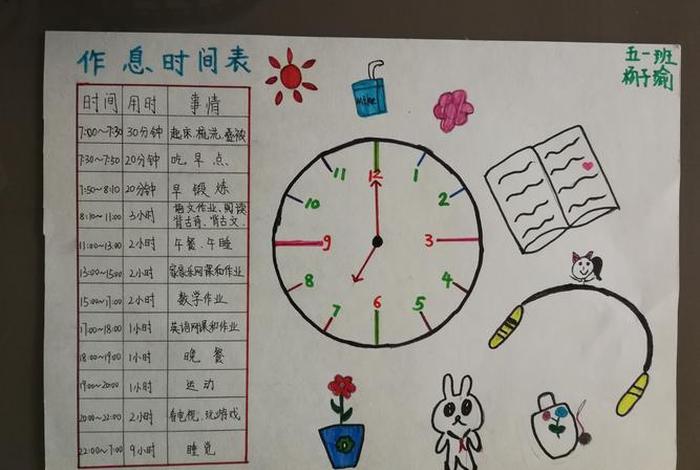 作息时间表
五一班
杨子瑜
时间 用时 事情
7:00~7:30 30分钟 起床、梳洗、叠被
7:30~7:50 20分钟 吃早点、
7:50~8:10 20分钟 早锻炼
8:10~11:00 3小时 语文作业、阅读
背古诗、背古文、
11:00~13:00 2小时 午餐、午睡
13:00~15:00 2小时 音乐网课和作业
15:00~17:00 2小时 数学作业
17:00~18:00 1小时 英语网课和作业
18:00~19:00 1小时 晚餐
19:00~20:00 1小时 运动
20:00~22:00 2小时 看电视、玩游戏
22:00~7:00 9小时 睡觉
MILK
12
1
2
3
4
5
6
7
8
9
10
11